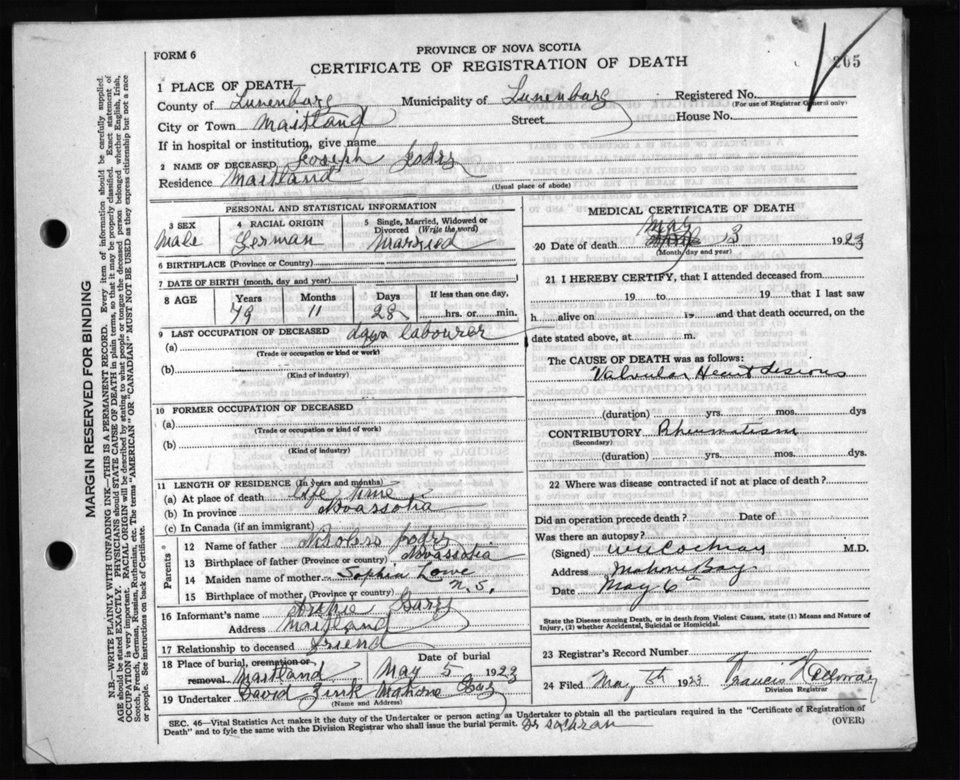 PROVINCE OF NOVA SCOTIA
FORM 6
CERTIFICATE OF REGISTRATION OF DEATH
205
1 PLACE OF DEATH—
County of Lunenburg Municipality of Lunenburg Registered No.
(For use of Registrar General only)
City or Town Maitland Street House No.
If in hospital or institution, give name
2 NAME OF DECEASED Joseph Jodry
Residence Maitland
(Usual place of abode)
PERSONAL AND STATISTICAL INFORMATION
3 SEX 4 RACIAL ORIGIN 5 Single, Married, Widowed or Divorced (Write the word)
Male German Married
6 BIRTHPLACE (Province or Country)
7 DATE OF BIRTH (month, day and year)
8 AGE Years Months Days If less than one day,
79 11 28 hrs. or min.
9 LAST OCCUPATION OF DECEASED days labourer
(a)
(Trade or occupation or kind or work)
(b)
(Kind of industry)
10 FORMER OCCUPATION OF DECEASED
(a)
(Trade or occupation or kind of work)
(b)
(Kind of industry)
11 LENGTH OF RESIDENCE (In years and months)
(a) At place of death life time
(b) In province Novassotia
(c) In Canada (if an immigrant)
Parents
12 Name of father Jodry
13 Birthplace of father (Province or country) Novassotia
14 Maiden name of mother Sophia Lowe
15 Birthplace of mother (Province or country) N.S.
16 Informant's name
Address Maitland
17 Relationship to deceased friend
18 Place of burial, cremation or removal Maitland Date of burial May 5 1923
19 Undertaker David Zink Mahone Bay
(Name and Address)
MEDICAL CERTIFICATE OF DEATH
20 Date of death May 3 1923
(Month, day and year)
21 I HEREBY CERTIFY, that I attended deceased from
19 to 19 that I last saw
h alive on 19 and that death occurred, on the
date stated above, at m.
The CAUSE OF DEATH was as follows:
Valvular Heart Lesions
(duration) yrs. mos. dys
CONTRIBUTORY Rheumatism
(Secondary)
(duration) yrs. mos. dys.
22 Where was disease contracted if not at place of death?
Did an operation precede death? Date of
Was there an autopsy?
(Signed) Cochran M.D.
Address Mahone Bay
Date May 6th
State the Disease causing Death, or in death from Violent Causes, state (1) Means and Nature of
Injury, (2) whether Accidental, Suicidal or Homicidal.
23 Registrar's Record Number
24 Filed May 6th 1923 Francis
Division Registrar
SEC. 46—Vital Statistics Act makes it the duty of the Undertaker or person acting as Undertaker to obtain all the particulars required in the "Certificate of Registration of
Death" and to fyle the same with the Division Registrar who shall issue the burial permit. Dr Cochran
(OVER)
MARGIN RESERVED FOR BINDING
N.B.—WRITE PLAINLY WITH UNFADING INK—THIS IS A PERMANENT RECORD. Every item of information should be carefully supplied.
AGE should be stated EXACTLY. PHYSICIANS should STATE CAUSE OF DEATH in plain terms, so that it may be properly classified. Exact statement of
OCCUPATION is very important. RACIAL ORIGIN will be described by stating to what people or tongue the deceased person belonged whether English, Irish,
Scotch, French, German, Russian, Ruthenian, etc. The terms "AMERICAN" OR "CANADIAN" MUST NOT BE USED as they express citizenship but not a race
or people. See instructions on back of Certificate.